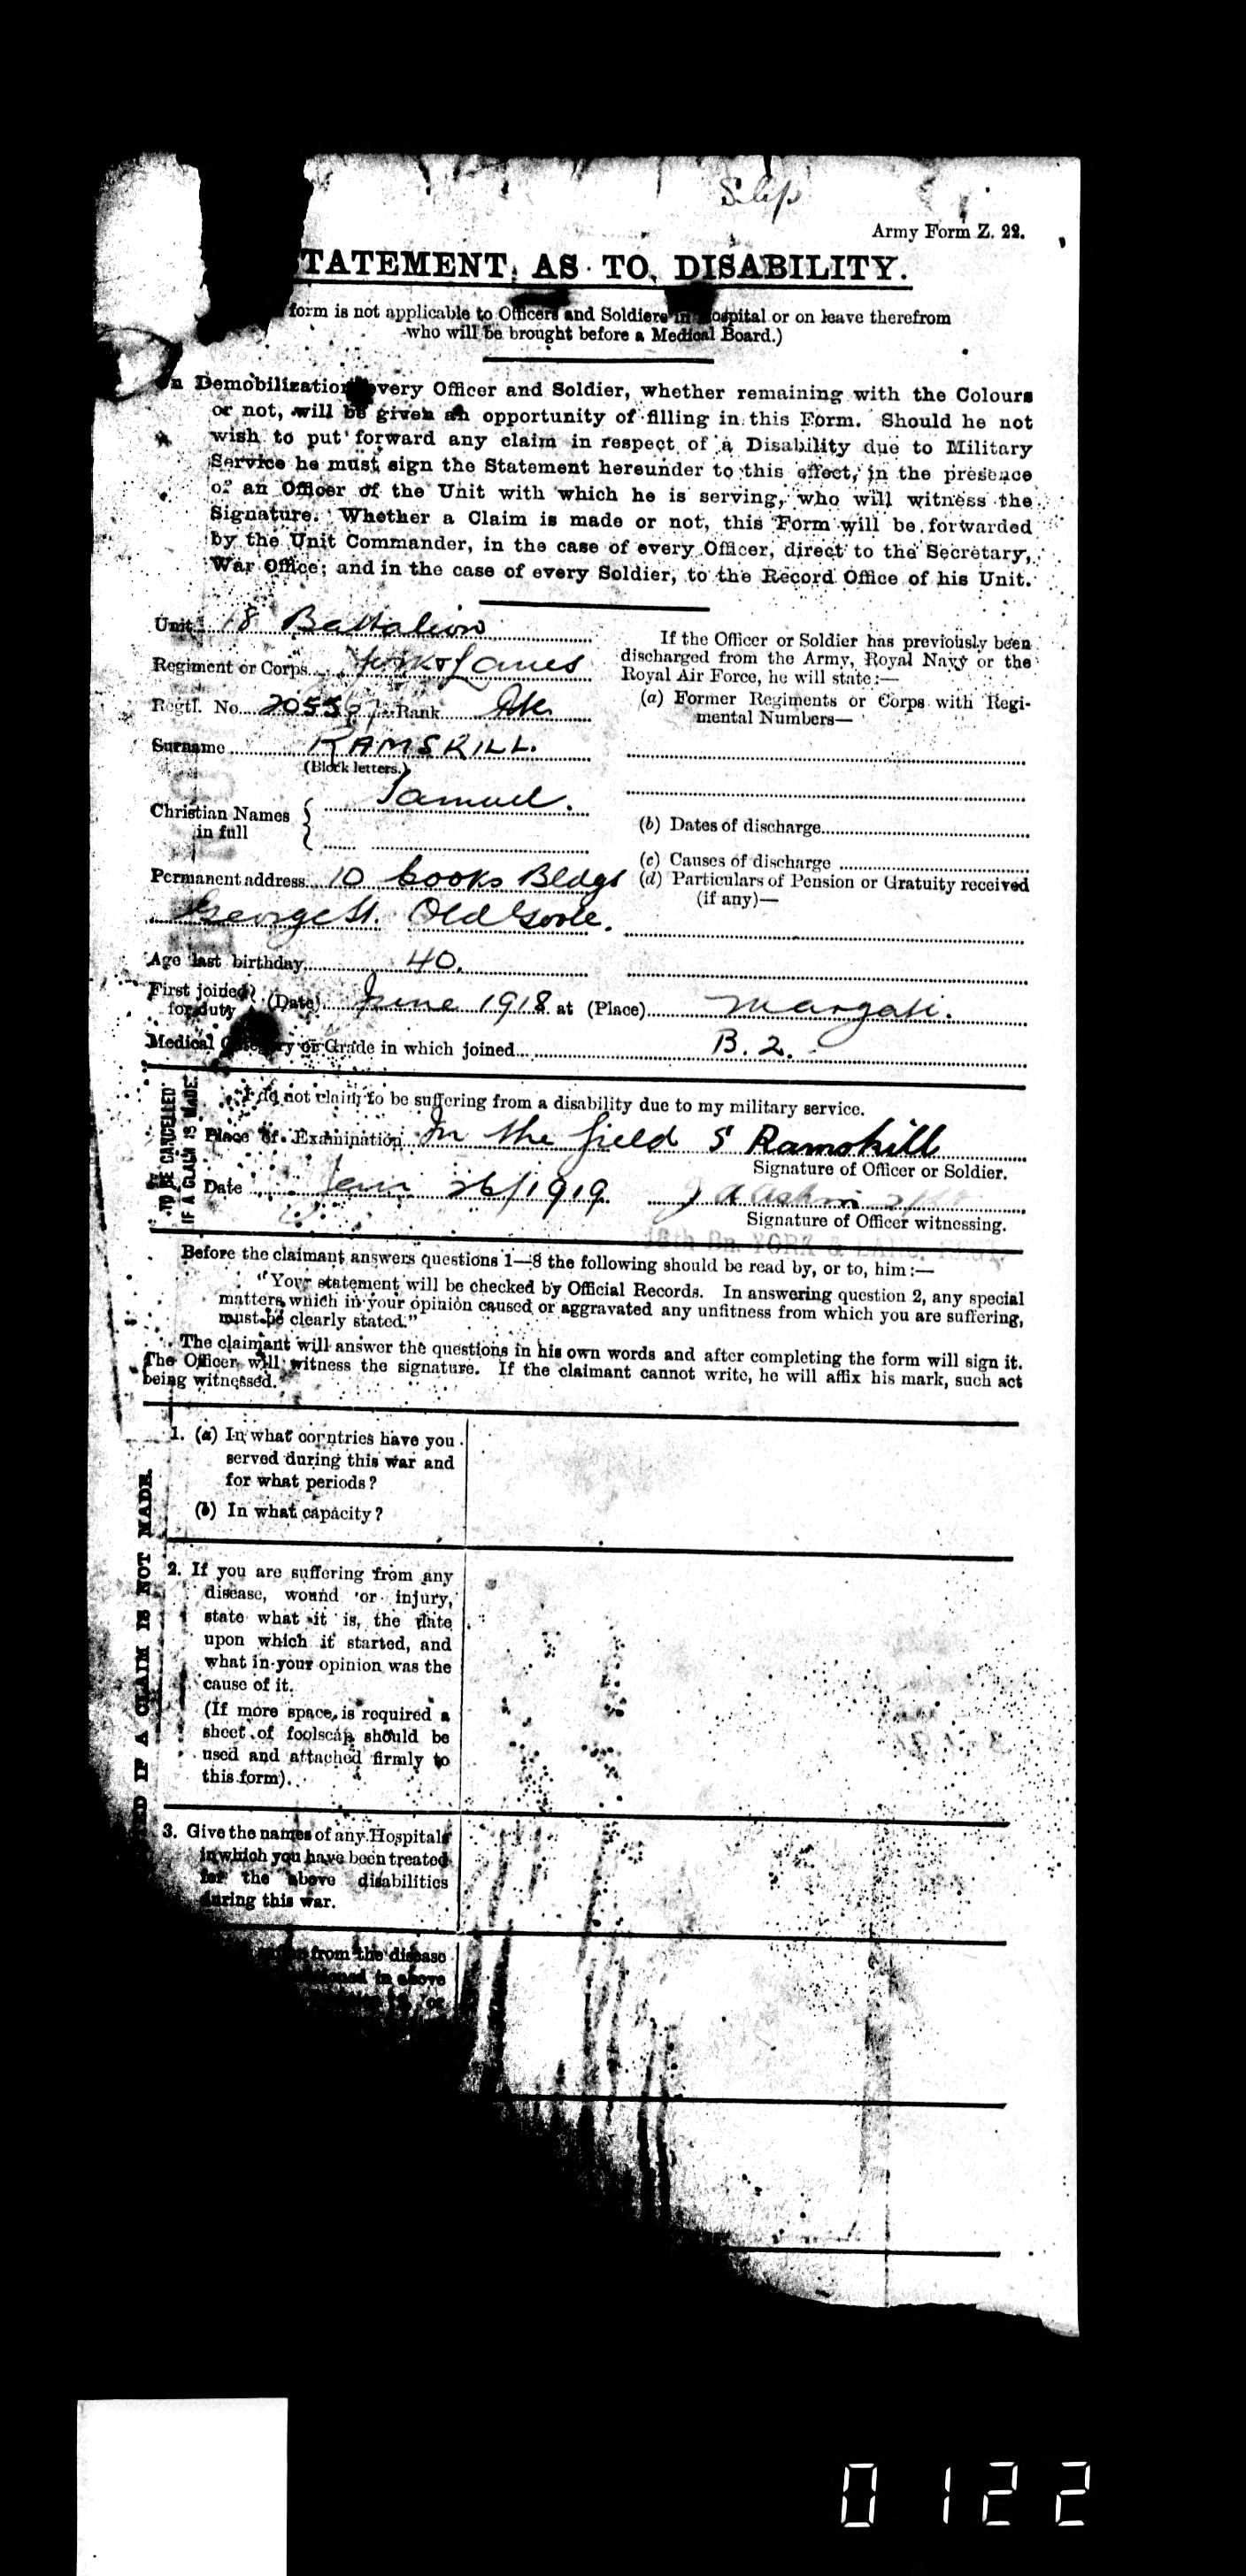 Slip
Army Form Z. 22.
TATEMENT AS TO DISABILITY.
form is not applicable to Officers and Soldiers in Hospital or on leave therefrom
who will be brought before a Medical Board.)
n Demobilization every Officer and Soldier, whether remaining with the Colours
or not, will be given an opportunity of filling in this Form. Should he not
wish to put forward any claim in respect of a Disability due to Military
Service he must sign the Statement hereunder to this effect, in the presence
of an Officer of the Unit with which he is serving, who will witness the
Signature. Whether a Claim is made or not, this Form will be forwarded
by the Unit Commander, in the case of every Officer, direct to the Secretary,
War Office; and in the case of every Soldier, to the Record Office of his Unit.
Unit 18 Battalion
Regiment or Corps York & Lancs
Regtl. No. 205597 Rank Pte
Surname RAMSKILL.
(Block letters.)
Christian Names in full Samuel.
Permanent address 10 Cooks Bldgs
George St. Old Goole.
Age last birthday 40.
If the Officer or Soldier has previously been
discharged from the Army, Royal Navy or the
Royal Air Force, he will state:—
(a) Former Regiments or Corps with Regi-
mental Numbers—
(b) Dates of discharge
(c) Causes of discharge
(d) Particulars of Pension or Gratuity received
(if any)—
First joined for duty (Date) June 1918 at (Place) Margate.
Medical Category or Grade in which joined B. 2.
TO BE CANCELLED
IF A CLAIM IS MADE.
I do not claim to be suffering from a disability due to my military service.
Place of Examination In the field S Ramskill
Signature of Officer or Soldier.
Date Jan 26/1919
Signature of Officer witnessing.
18th Bn. YORK & LANC.
Before the claimant answers questions 1—8 the following should be read by, or to, him:—
"Your statement will be checked by Official Records. In answering question 2, any special
matters which in your opinion caused or aggravated any unfitness from which you are suffering,
must be clearly stated."
The claimant will answer the questions in his own words and after completing the form will sign it.
The Officer will witness the signature. If the claimant cannot write, he will affix his mark, such act
being witnessed.
ED IF A CLAIM IS NOT MADE.
1. (a) In what countries have you
served during this war and
for what periods?
(b) In what capacity?
2. If you are suffering from any
disease, wound or injury,
state what it is, the date
upon which it started, and
what in your opinion was the
cause of it.
(If more space is required a
sheet of foolscap should be
used and attached firmly to
this form).
3. Give the names of any Hospitals
in which you have been treated
for the above disabilities
during this war.
from the disease
in above
or
0122